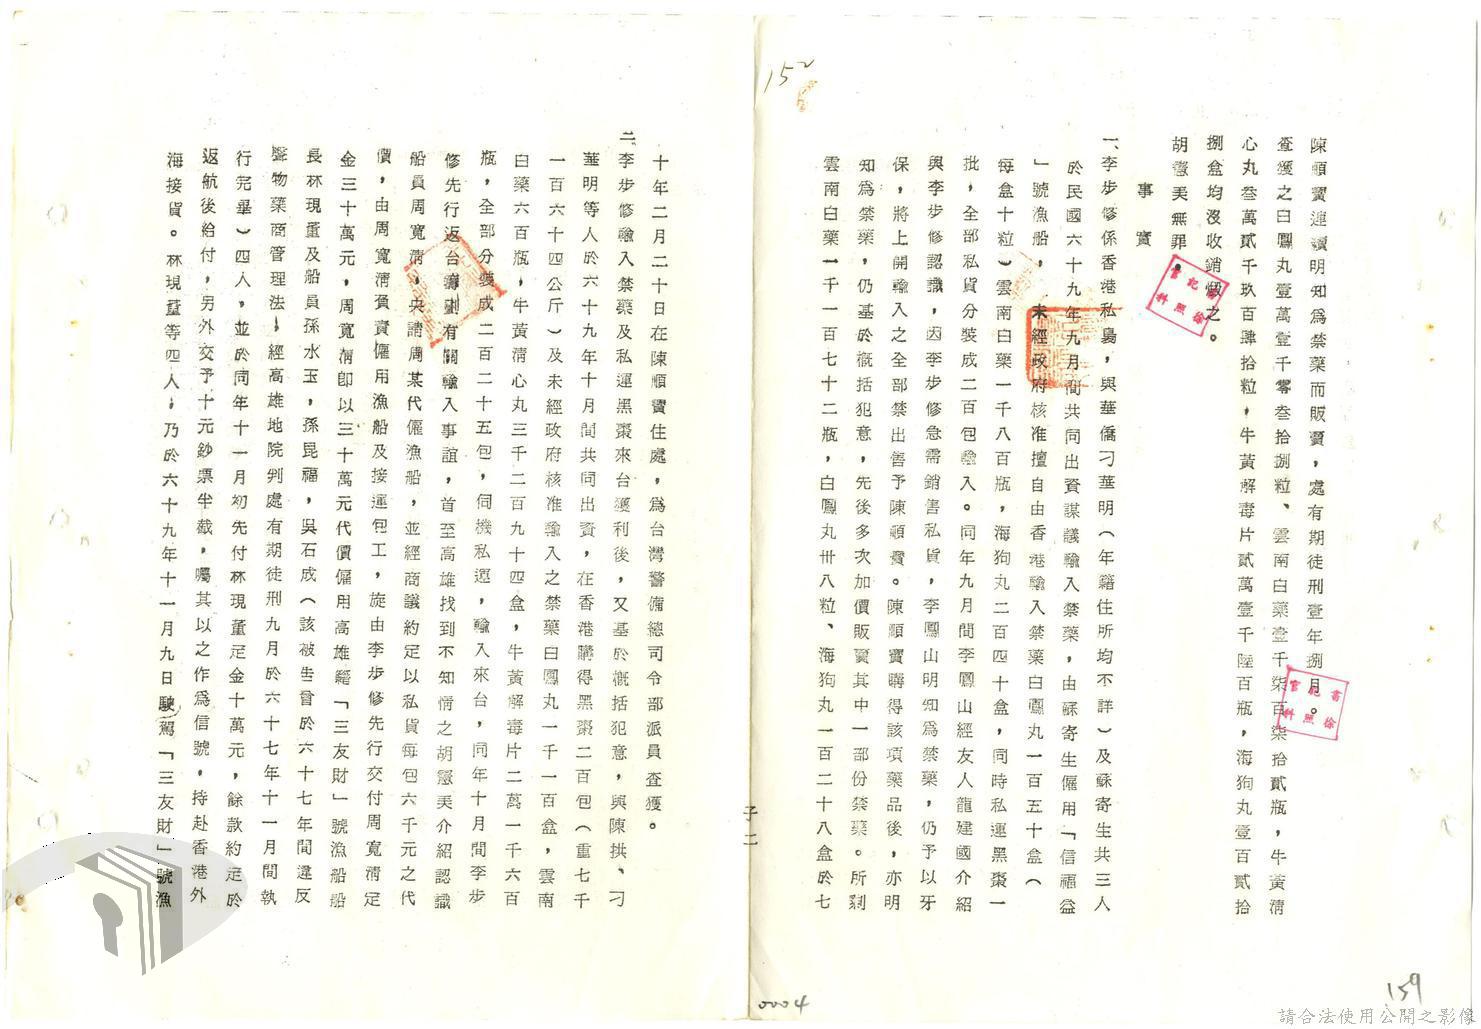 陳順寶連續明知為禁藥而販賣，處有期徒刑壹年捌月。
查獲之白鳳丸壹萬壹千零叁拾捌粒、雲南白藥壹千柒百柒拾貳瓶，牛黃清
心丸叁萬貳千玖百肆拾粒，牛黃解毒片貳萬壹千陸百瓶，海狗丸壹百貳拾
捌盒均沒收銷燬之。
胡憲美無罪。
事實
一、李步修係香港私梟，與華僑刁華明（年籍住所均不詳）及蘇寄生共三人
於民國六十九年九月間共同出資謀議輸入禁藥，由蘇寄生僱用「信福益
」號漁船，未經政府核准擅自由香港輸入禁藥白鳳丸一百五十盒（
每盒十粒）雲南白藥一千八百瓶，海狗丸二百四十盒，同時私運黑棗一
批，全部私貨分裝成二百包輸入。同年九月間李鳳山經友人龍建國介紹
與李步修認識，因李步修急需銷售私貨，李鳳山明知為禁藥，仍予以牙
保，將上開輸入之全部禁出售予陳順寶。陳順寶購得該項藥品後，亦明
知為禁藥，仍基於概括犯意，先後多次加價販賣其中一部份禁藥。所剩
雲南白藥一千一百七十二瓶，白鳳丸卅八粒、海狗丸一百二十八盒於七
十年二月二十日在陳順寶住處，為台灣警備總司令部派員查獲。
二、李步修輸入禁藥及私運黑棗來台獲利後，又基於概括犯意，與陳拱、刁
華明等人於六十九年十月間共同出資，在香港購得黑棗二百包（重七千
一百六十四公斤）及未經政府核准輸入之禁藥白鳳丸一千一百盒，雲南
白藥六百瓶，牛黃清心丸三千二百九十四盒，牛黃解毒片二萬一千六百
瓶，全部分裝成二百二十五包，伺機私運，輸入來台，同年十月間李步
修先行返台籌劃有關輸入事誼，首至高雄找到不知情之胡憲美介紹認識
船員周寬清，央請周某代僱漁船，並經商議約定以私貨每包六千元之代
價，由周寬清負責僱用漁船及接運包工，旋由李步修先行交付周寬清定
金三十萬元，周寬清即以三十萬元代價僱用高雄籍「三友財」號漁船船
長林現董及船員孫水玉，孫毘福，吳石成（該被告曾於六十七年間違反
醫物藥商管理法，經高雄地院判處有期徒刑九月於六十七年十一月間執
行完畢）四人，並於同年十一月初先付林現董定金十萬元，餘款約定於
返航後給付，另外交予十元鈔票半截，囑其以之作為信號，持赴香港外
海接貨。林現董等四人，乃於六十九年十一月九日駛駕「三友財」號漁
子二
152
159
0004
書記官徐照科
書記官徐照科
請合法使用公開之影像